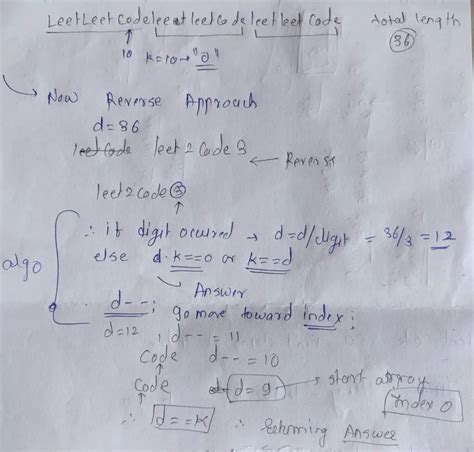 LeetLeetCodeleetleetcodeleetleetCode total length
36
10 k=10→"o"
Now Reverse Approach
d=36
leetcode leet2code3 ← Reverse
leet2code3
algo
∴ if digit ocurred → d=d/digit = 36/3 = 12
else d·k==0 or k==d
Answer
d--; go more toward index;
d=12 d-- = 11
Code d-- = 10
Code d=9 → start array
Index 0
∴ d==k ∴ Returning Answer